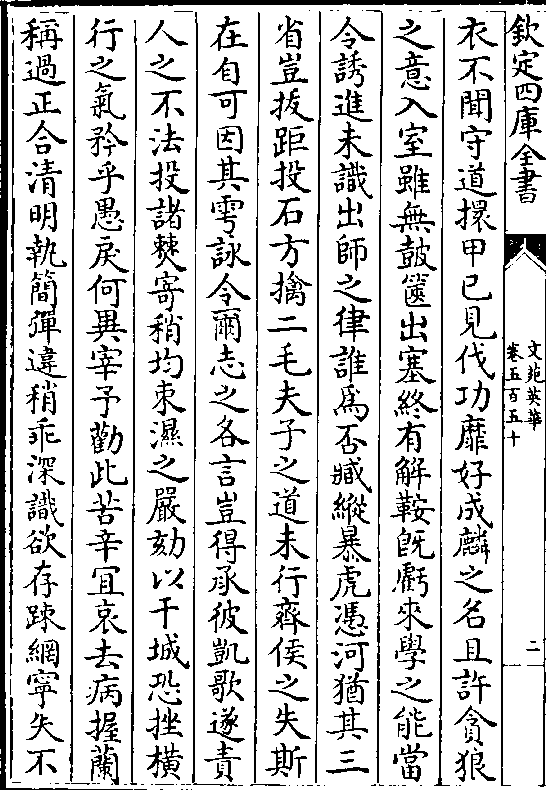 欽定四庫全書
文苑英華
卷五百五十
二
衣不聞守道擐甲已見伐功靡好成麟之名且許貪狼
之意入室雖無鼓篋出塞終有解鞍既虧來學之能當
令誘進未識出師之律誰為否臧縱暴虎憑河猶其三
省豈拔距投石方擒二毛夫子之道未行齊侯之失斯
在自可因其雩詠令爾志之各言豈得承彼凱歌遂責
人之不法投諸僰寄稍均束濕之嚴劾以干城恐挫橫
行之氣矜乎愚戾何異宰予勸此苦辛宜哀去病握蘭
稱過正合清明執簡彈違稍乖深識欲存踈網寧失不